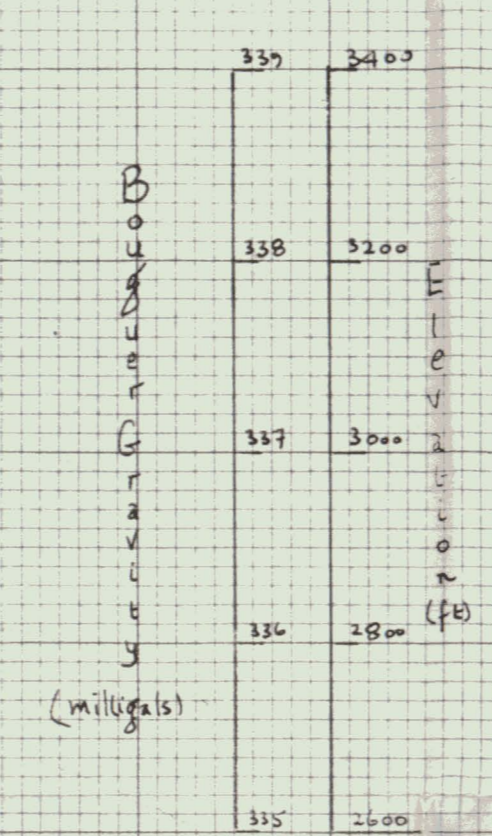 Bouguer Gravity
(milligals)
339
338
337
336
335
3400
3200
3000
2800
2600
Elevation
(ft)